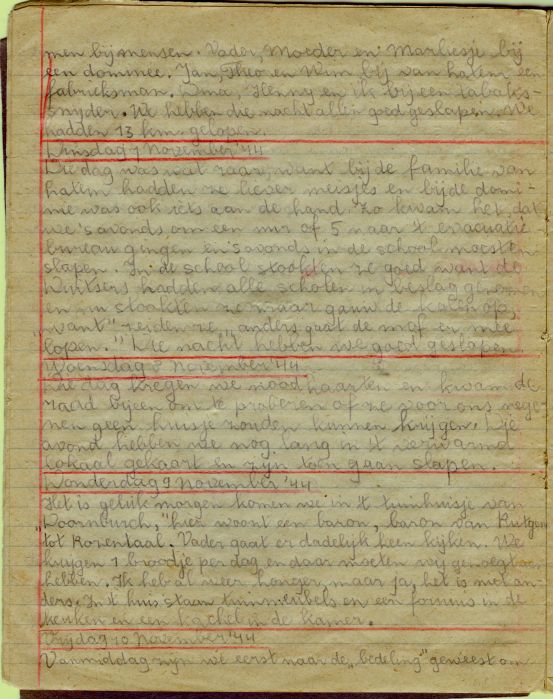 men bij mensen. Vader, Moeder en Marliesje bij
een dominee. Jan, Theo en Wim bij van hatem een
fabrieksman. Oma, Henny en ik bij een tabaks-
snyder. We hebben die nacht allen goed geslapen. We
hadden 13 km. gelopen.
Dinsdag 7 November '44
Die dag was wat raar, want bij de familie van
hatem hadden ze liever meisjes en bij de domi-
nie was ook iets aan de hand. Zo kwam het, dat
we 's avonds om een uur of 5 naar 't evacuatie-
bureau gingen en 's avonds in de school moesten
slapen. In de school stookten ze goed want de
Duitsers hadden alle scholen in beslag genomen
en nu stookten ze maar gauw de kolen op,
"want" zeiden ze, "anders gaat de mof er mee
lopen." Die nacht hebben we goed geslapen.
Woensdag 8 November '44
Die dag kregen we noodkaarten en kwam de
raad bijeen om te proberen of ze voor ons nege-
nen geen huisje zouden kunnen krijgen. Die
avond hebben we nog lang in 't verwarmd
lokaal gekaart en zijn toen gaan slapen.
Donderdag 9 November '44
Het is gelukt morgen komen we in 't tuinhuisje van
"Voornburch," hier woont een baron, baron van
tot Rozentaal. Vader gaat er dadelijk heen kijken. We
krijgen 1 broodje per dag en daar moeten wij genoeg aan
hebben. Ik heb al weer honger, maar ja, het is niet an-
ders. In 't huis staan tuinmeubels en een fornuis in de
keuken en een kachel in de kamer.
Vrijdag 10 November '44
Vanmiddag zijn we eerst naar de "bedeling" geweest om